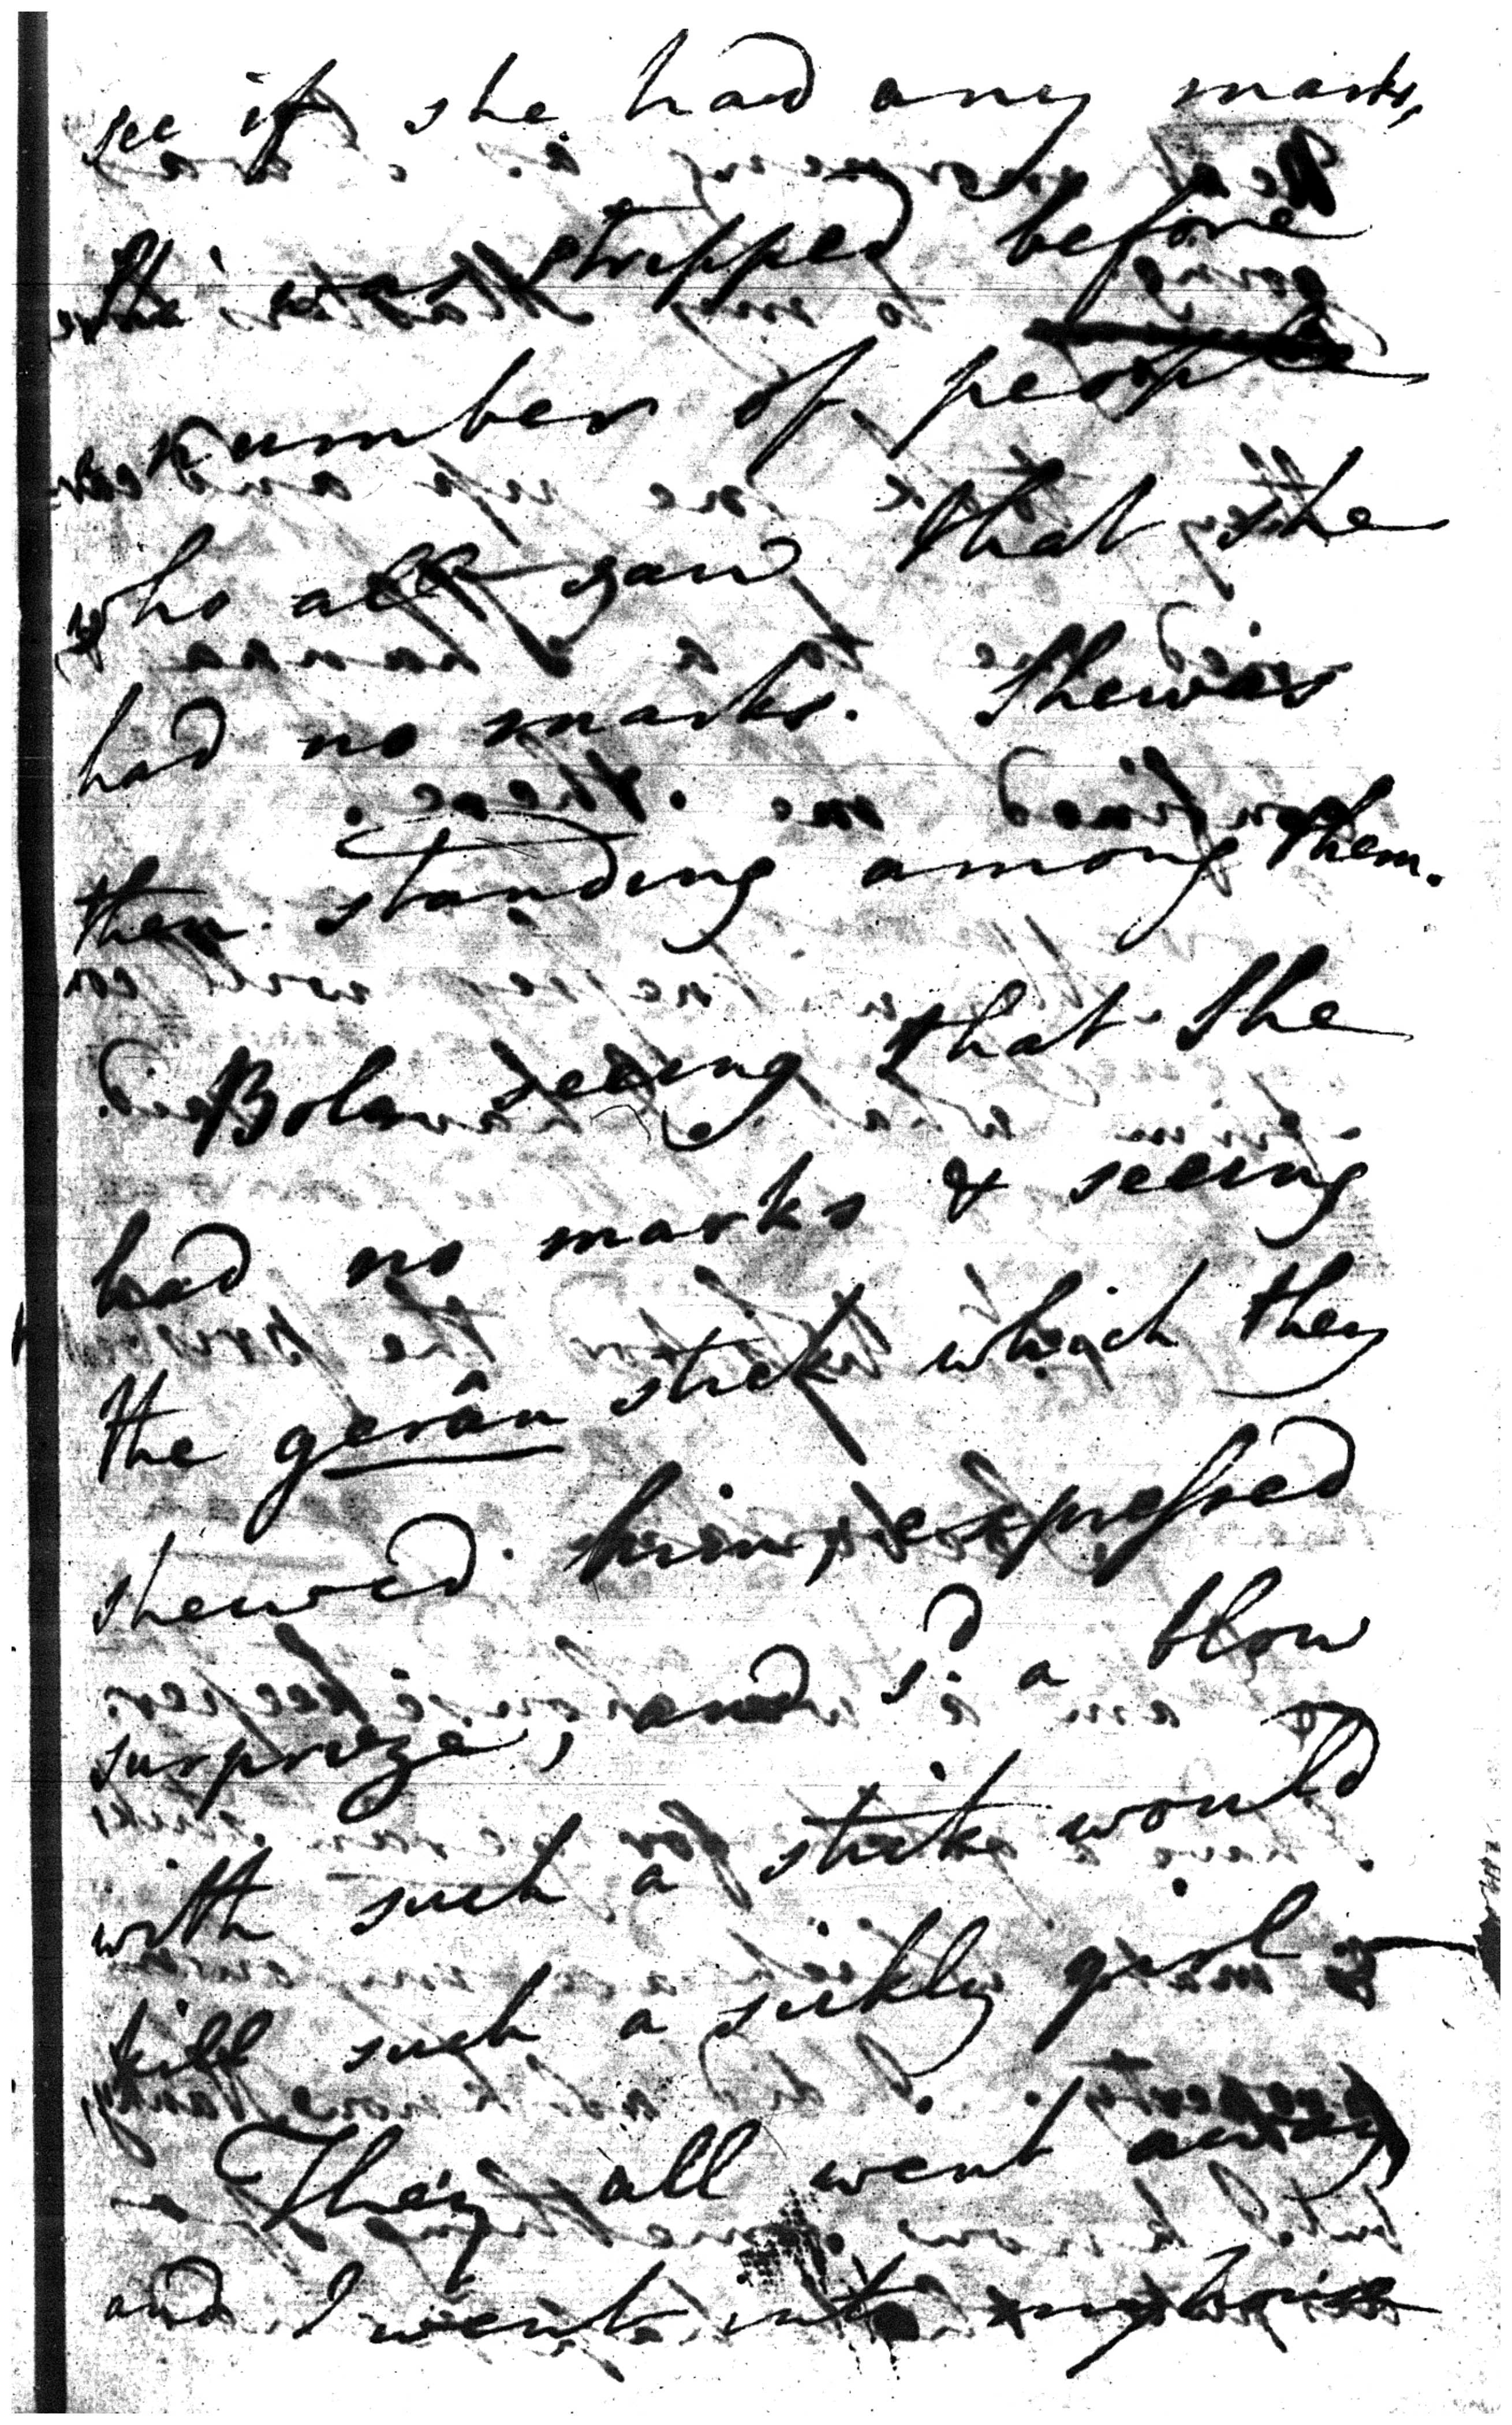 see if she had any marks,
she was stripped before
a number of people
who all saw that she
had no marks. She was
then standing among them.
Bolan seeing that she
had no marks & seeing
the gerân stick which they
shewed him, expressed
surprize, and sd. a blow
with such a stick would
kill such a sickly girl
They all went away
and I went into my house